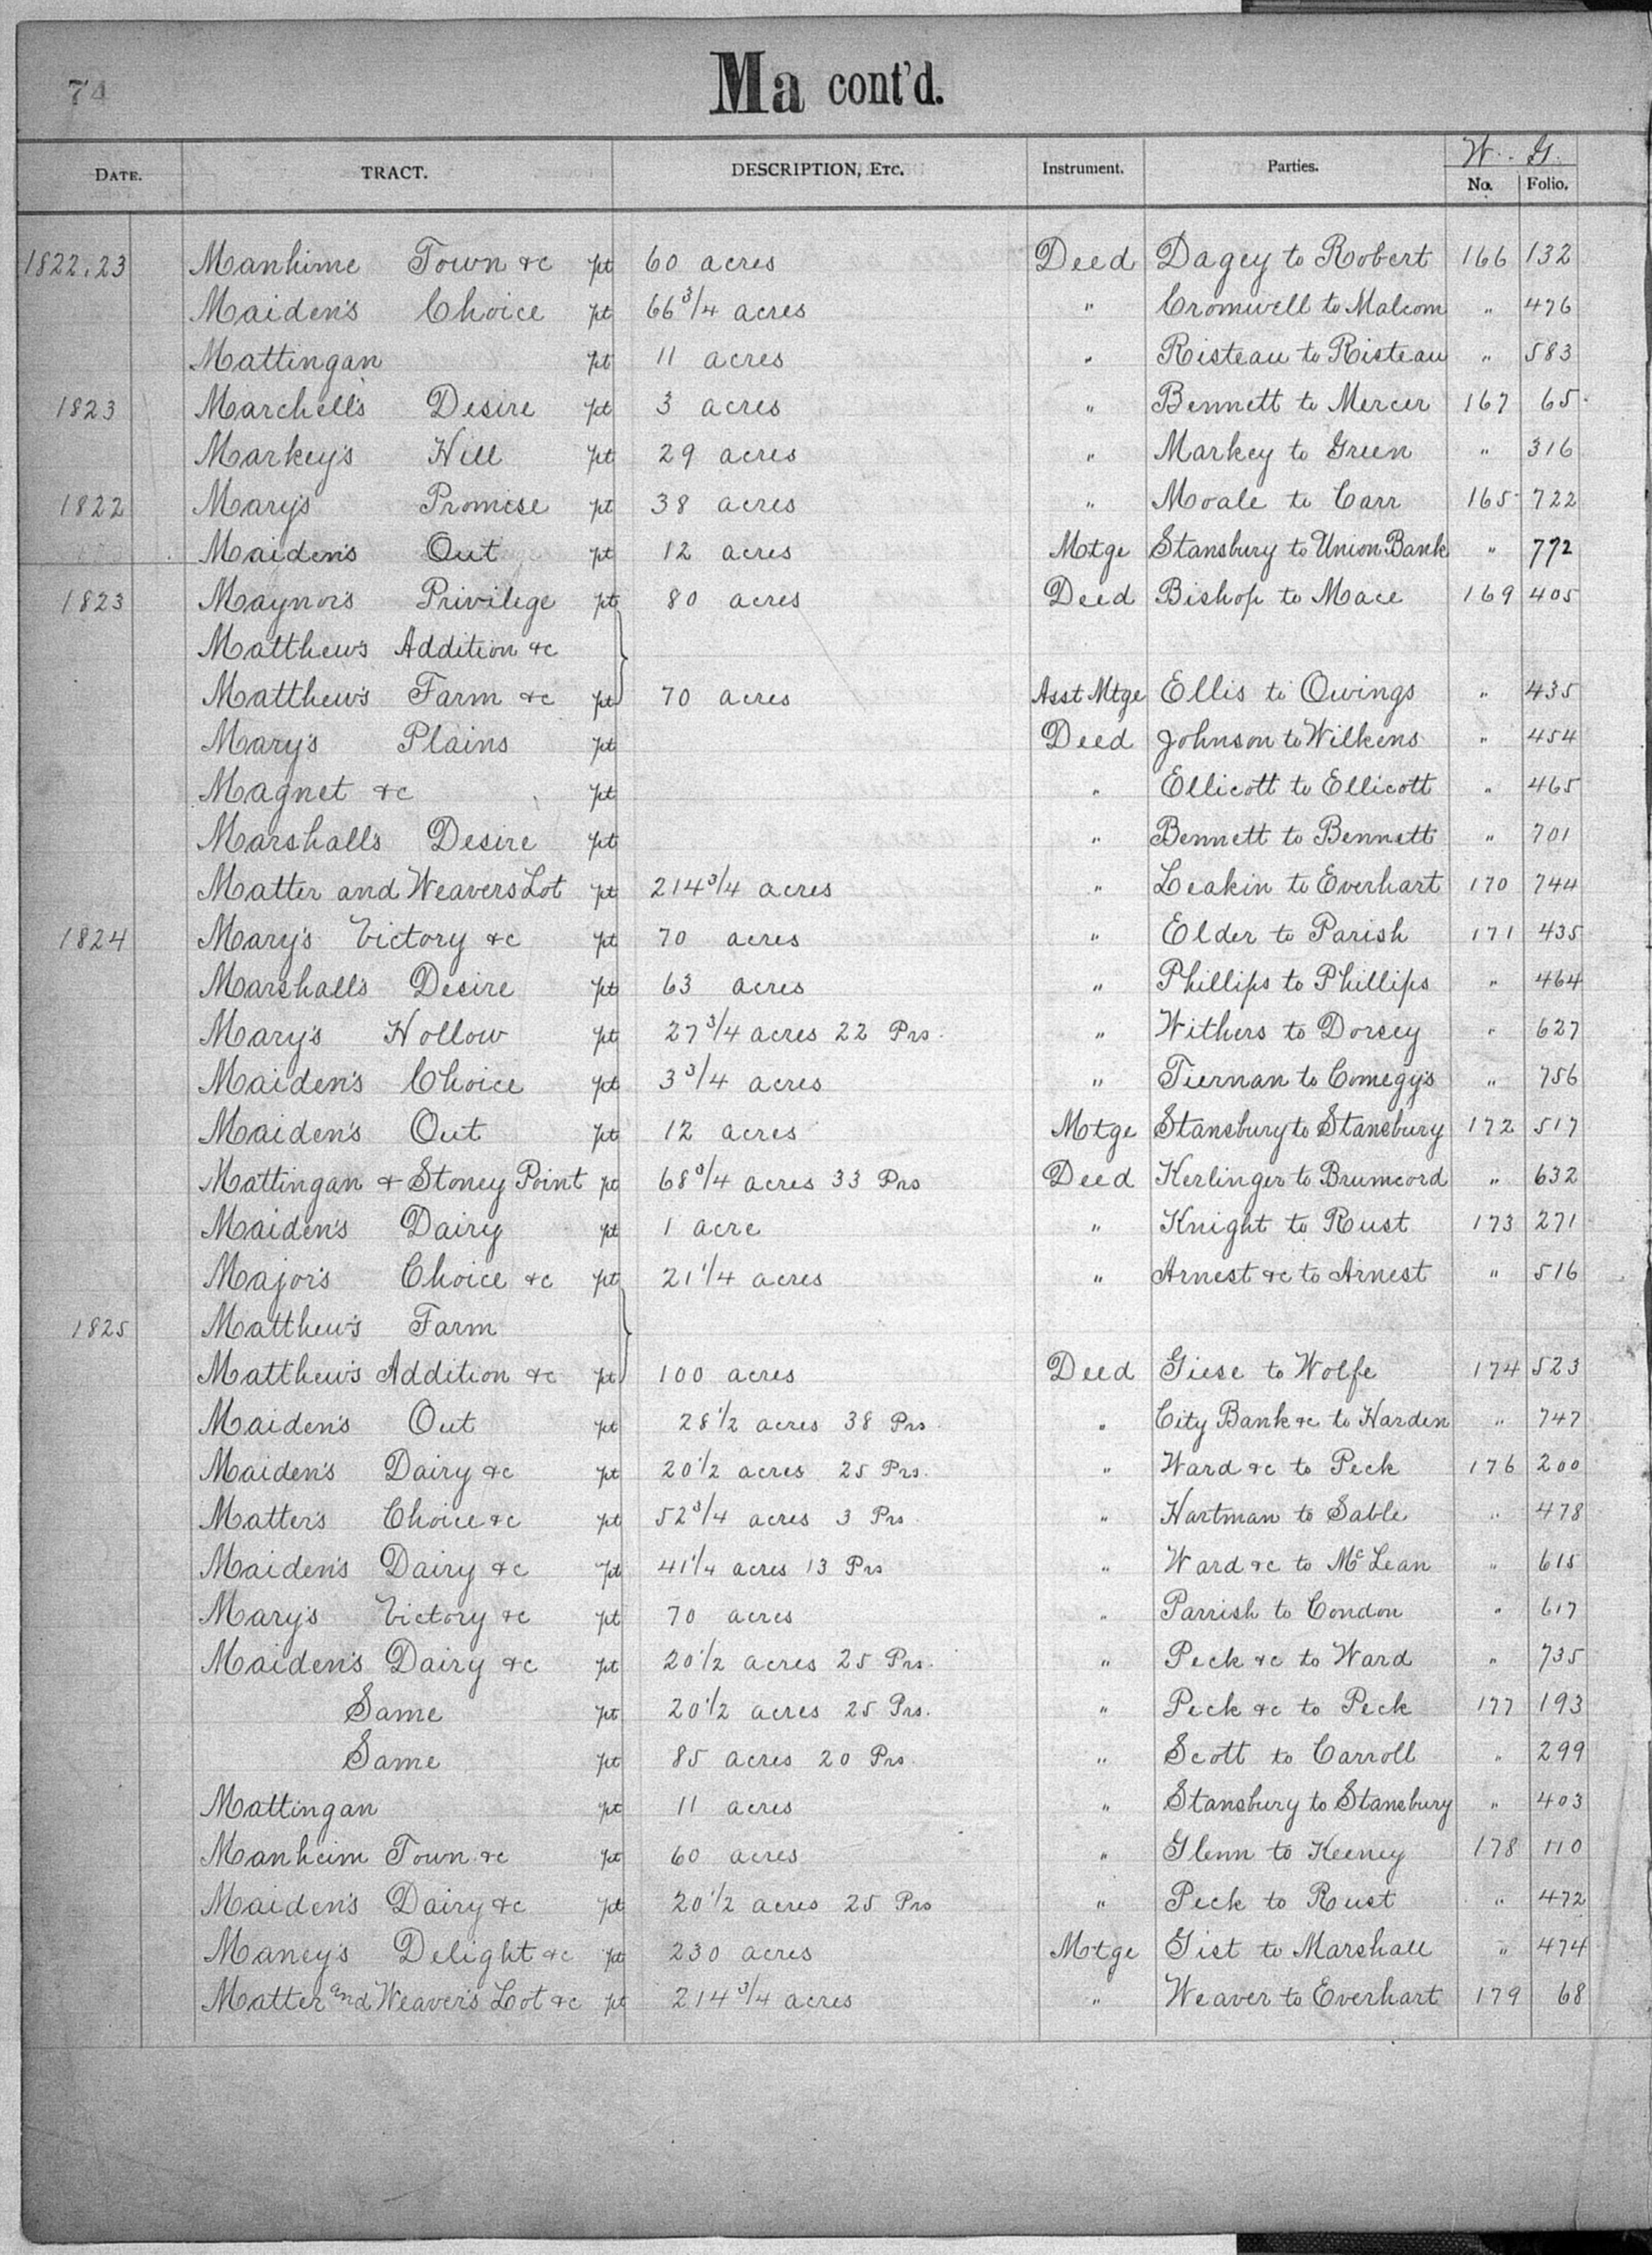 74
Ma cont'd.
DATE. TRACT. DESCRIPTION, ETC. Instrument. Parties. W. G. No. Folio.
1822.23 Manhime Town &c pt 60 acres Deed Dagey to Robert 166 132
Maiden's Choice pt 66 3/4 acres " Cromwell to Malcom " 476
Mattingan pt 11 acres " Risteau to Risteau " 583
1823 Marchell's Desire pt 3 acres " Bennett to Mercer 167 65
Markey's Hill pt 29 acres " Markey to Green " 316
1822 Mary's Promise pt 38 acres " Moale to Carr 165 722
Maiden's Out pt 12 acres Motge Stansbury to Union Bank " 772
1823 Maynor's Privilege pt 80 acres Deed Bishop to Mace 169 405
Matthews Addition &c
Matthew's Farm &c pt 70 acres Asst Mtge Ellis to Owings " 435
Mary's Plains pt Deed Johnson to Wilkens " 454
Magnet &c pt " Ellicott to Ellicott " 465
Marshall's Desire pt " Bennett to Bennett " 701
Matter and Weavers Lot pt 214 3/4 acres " Leakin to Everhart 170 744
1824 Mary's Victory &c pt 70 acres " Elder to Parish 171 435
Marshall's Desire pt 63 acres " Phillips to Phillips " 464
Mary's Hollow pt 27 3/4 acres 22 Prs. " Withers to Dorsey " 627
Maiden's Choice pt 3 3/4 acres " Tiernan to Comegy's " 756
Maiden's Out pt 12 acres Motge Stansbury to Stansbury 172 517
Mattingan & Stoney Point pt 68 3/4 acres 33 Prs Deed Kerlinger to Brumcord " 632
Maiden's Dairy pt 1 acre " Knight to Rust 173 271
Major's Choice &c pt 21 1/4 acres " Arnest &c to Arnest " 516
1825 Matthew's Farm
Matthew's Addition &c pt 100 acres Deed Giese to Wolfe 174 523
Maiden's Out pt 28 1/2 acres 38 Prs. " City Bank &c to Harden " 747
Maiden's Dairy &c pt 20 1/2 acres 25 Prs. " Ward &c to Peck 176 200
Matter's Choice &c pt 52 3/4 acres 3 Prs. " Hartman to Sable " 478
Maiden's Dairy &c pt 41 1/4 acres 13 Prs " Ward &c to McLean " 615
Mary's Victory &c pt 70 acres " Parrish to Condon " 617
Maiden's Dairy &c pt 20 1/2 acres 25 Prs. " Peck &c to Ward " 735
Same pt 20 1/2 acres 25 Prs. " Peck &c to Peck 177 193
Same pt 85 acres 20 Prs. " Scott to Carroll " 299
Mattingan pt 11 acres " Stansbury to Stansbury " 403
Manheim Town &c pt 60 acres " Glenn to Keeney 178 110
Maiden's Dairy &c pt 20 1/2 acres 25 Prs " Peck to Rust " 472
Maney's Delight &c pt 230 acres Motge Gist to Marshall " 474
Matter and Weaver's Lot &c pt 214 3/4 acres " Weaver to Everhart 179 68